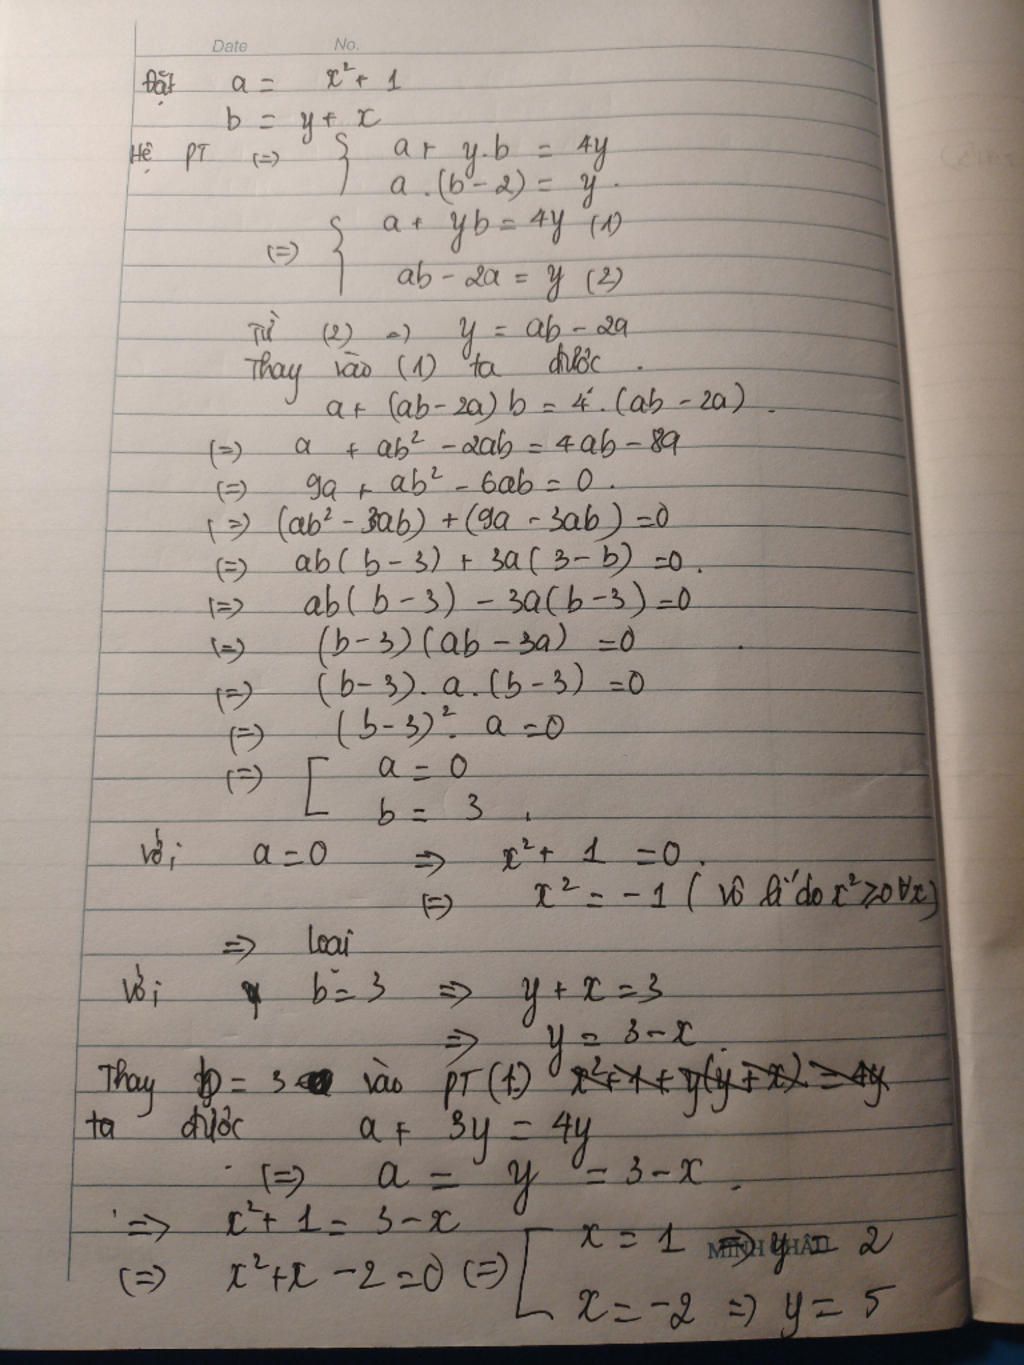 Date No.
Đặt a = x² + 1
b = y + x
Hệ PT (=) { a + y.b = 4y
a.(b-2) = y.
(=) { a + yb = 4y (1)
ab - 2a = y (2)
Từ (2) => y = ab - 2a
Thay vào (1) ta được.
a + (ab-2a)b = 4.(ab-2a).
(=) a + ab² - 2ab = 4ab - 8a
(=) 9a + ab² - 6ab = 0.
(=) (ab² - 3ab) + (9a - 3ab) = 0
(=) ab(b-3) + 3a(3-b) = 0.
(=) ab(b-3) - 3a(b-3) = 0
(=) (b-3)(ab-3a) = 0
(=) (b-3).a.(b-3) = 0
(=) (b-3)².a = 0
(=) [ a = 0
b = 3.
Với a = 0 => x² + 1 = 0.
(=) x² = -1 (vô lí do x² ≥ 0 ∀x)
=> loại
Với b = 3 => y + x = 3
=> y = 3 - x
Thay b = 3 vào PT (1) x² + 1 + y(y+x) = 4y
ta được a + 3y = 4y
(=) a = y = 3 - x.
=> x² + 1 = 3 - x
(=) x² + x - 2 = 0 (=) [ x = 1 => y = 2
x = -2 => y = 5
MINH CHÂU